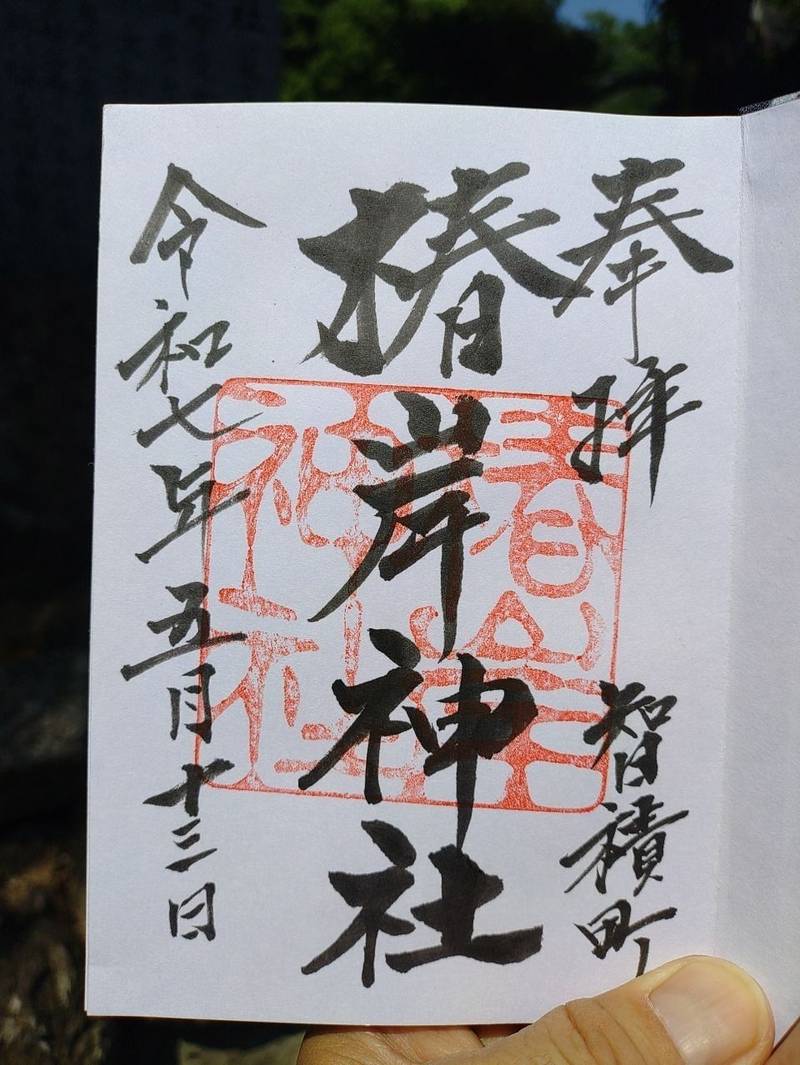 奉拝
智積町
椿岸神社
椿岸神社
令和七年五月十三日